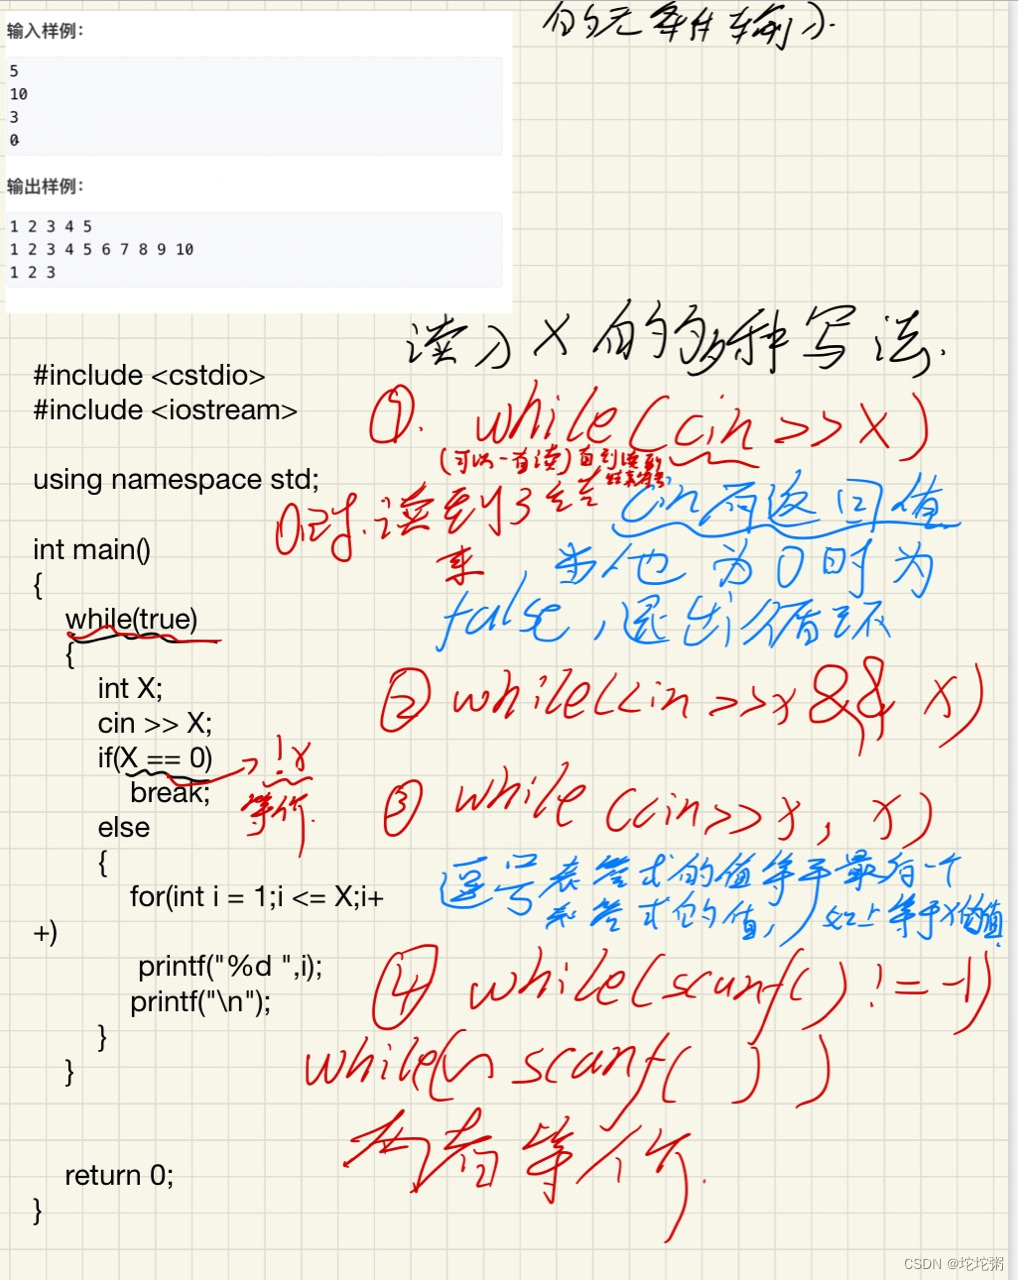 的无条件输入.
输入样例:
5
10
3
0
输出样例:
1 2 3 4 5
1 2 3 4 5 6 7 8 9 10
1 2 3
读入X的的多种写法.
#include <cstdio>
#include <iostream>
using namespace std;
int main()
{
while(true)
{
int X;
cin >> X;
if(X == 0)
break;
else
{
for(int i = 1;i <= X;i+
+)
printf("%d ",i);
printf("\n");
}
}
return 0;
}
!x
等价.
①. while(cin >>X)
(可以一直读)直到读到
结束符号
0时.读到了结
束
cin有返回值
,当他为0时为
false,退出循环
② while(cin >>x && x)
③ while (cin>>x, x)
逗号表答式的值等于最后一个
表答式的值,以上等于X的值.
④ while(scanf() != -1)
while(~ scanf( ))
两者等价.
CSDN @坨坨粥